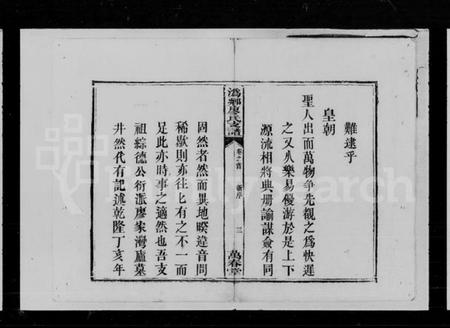 難逮乎
皇朝
聖人出而萬物爭先觀之為快遲
之又久樂易優游於是上下
源流相將典冊諭謀僉有同
溈鄉廖氏支譜
卷之首
新序
三
萬春堂
因然者然而異地暌違音問
稀歇則亦往匕有之不一而
足此亦時事之適然也吾支
祖綜德公衍派廖家灣廬墓
井然代有記述乾隆丁亥年